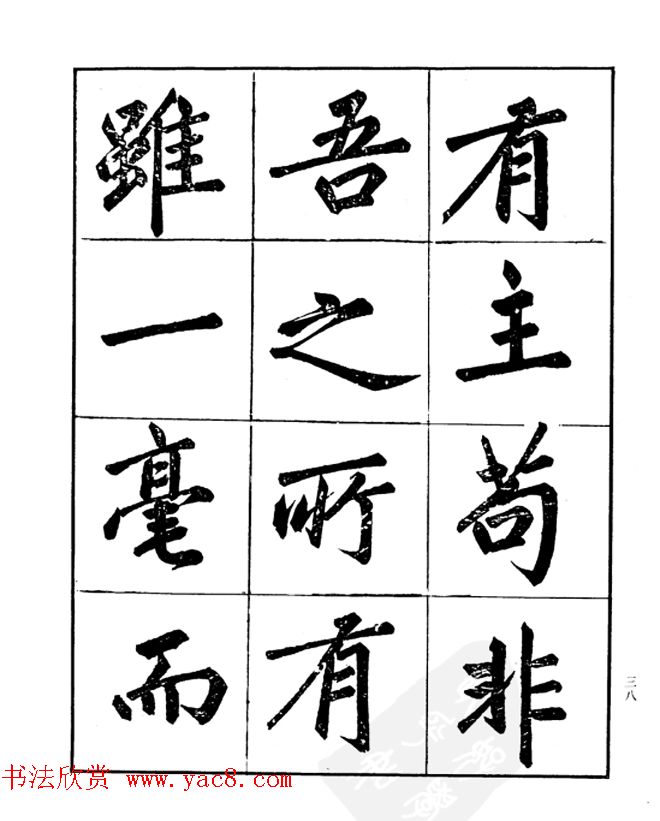 有主苟非
吾之所有
雖一毫而
三八
书法欣赏 www.yac8.com